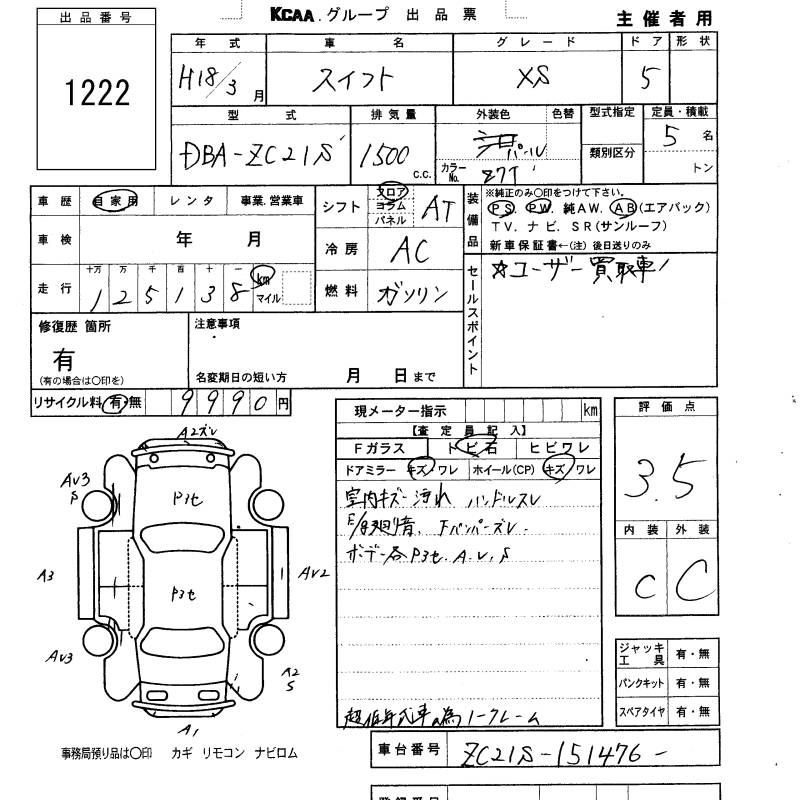 出品番号
1222
KCAA.グループ 出品票
主催者用
年式 車名 グレード ドア 形状
H18/3月 スイフト XS 5
型式 排気量 外装色 色替 型式指定 定員・積載
DBA-ZC21S 1500 c.c. パール カラーNo. Z7T 類別区分 5名
トン
車歴 自家用 レンタ 事業、営業車
シフト フロア コラム パネル AT
装備品 ※純正のみ〇印をつけて下さい。
PS. PW. 純AW. AB(エアバック)
TV. ナビ. SR(サンルーフ)
新車保証書←(注)後日送りのみ
車検 年 月
冷房 AC
走行 十万 万 千 百 十 一 km マイル
125138
燃料 ガソリン
セールスポイント ☆ユーザー買取車!
修復歴 箇所
有
(有の場合は〇印を)
注意事項
名変期日の短い方 月 日まで
リサイクル料 有・無 9990円
現メーター指示 km
【査定員記入】
Fガラス トビ石 ヒビワレ
ドアミラー キズ ワレ ホイール(CP) キズ ワレ
室内キズ・汚れ ハンドルスレ
下バンパーズレ
ボデー各P3セ.A.V.S
超低年式車の為ノークレーム
評価点
3.5
内装 外装
C C
A2ズレ
AV3
S
P3セ
A3
P3セ
AV2
AV3
A2
S
A1
ジャッキ工具 有・無
パンクキット 有・無
スペアタイヤ 有・無
事務局預り品は〇印 カギ リモコン ナビロム
車台番号 ZC21S-151476-
登録番号